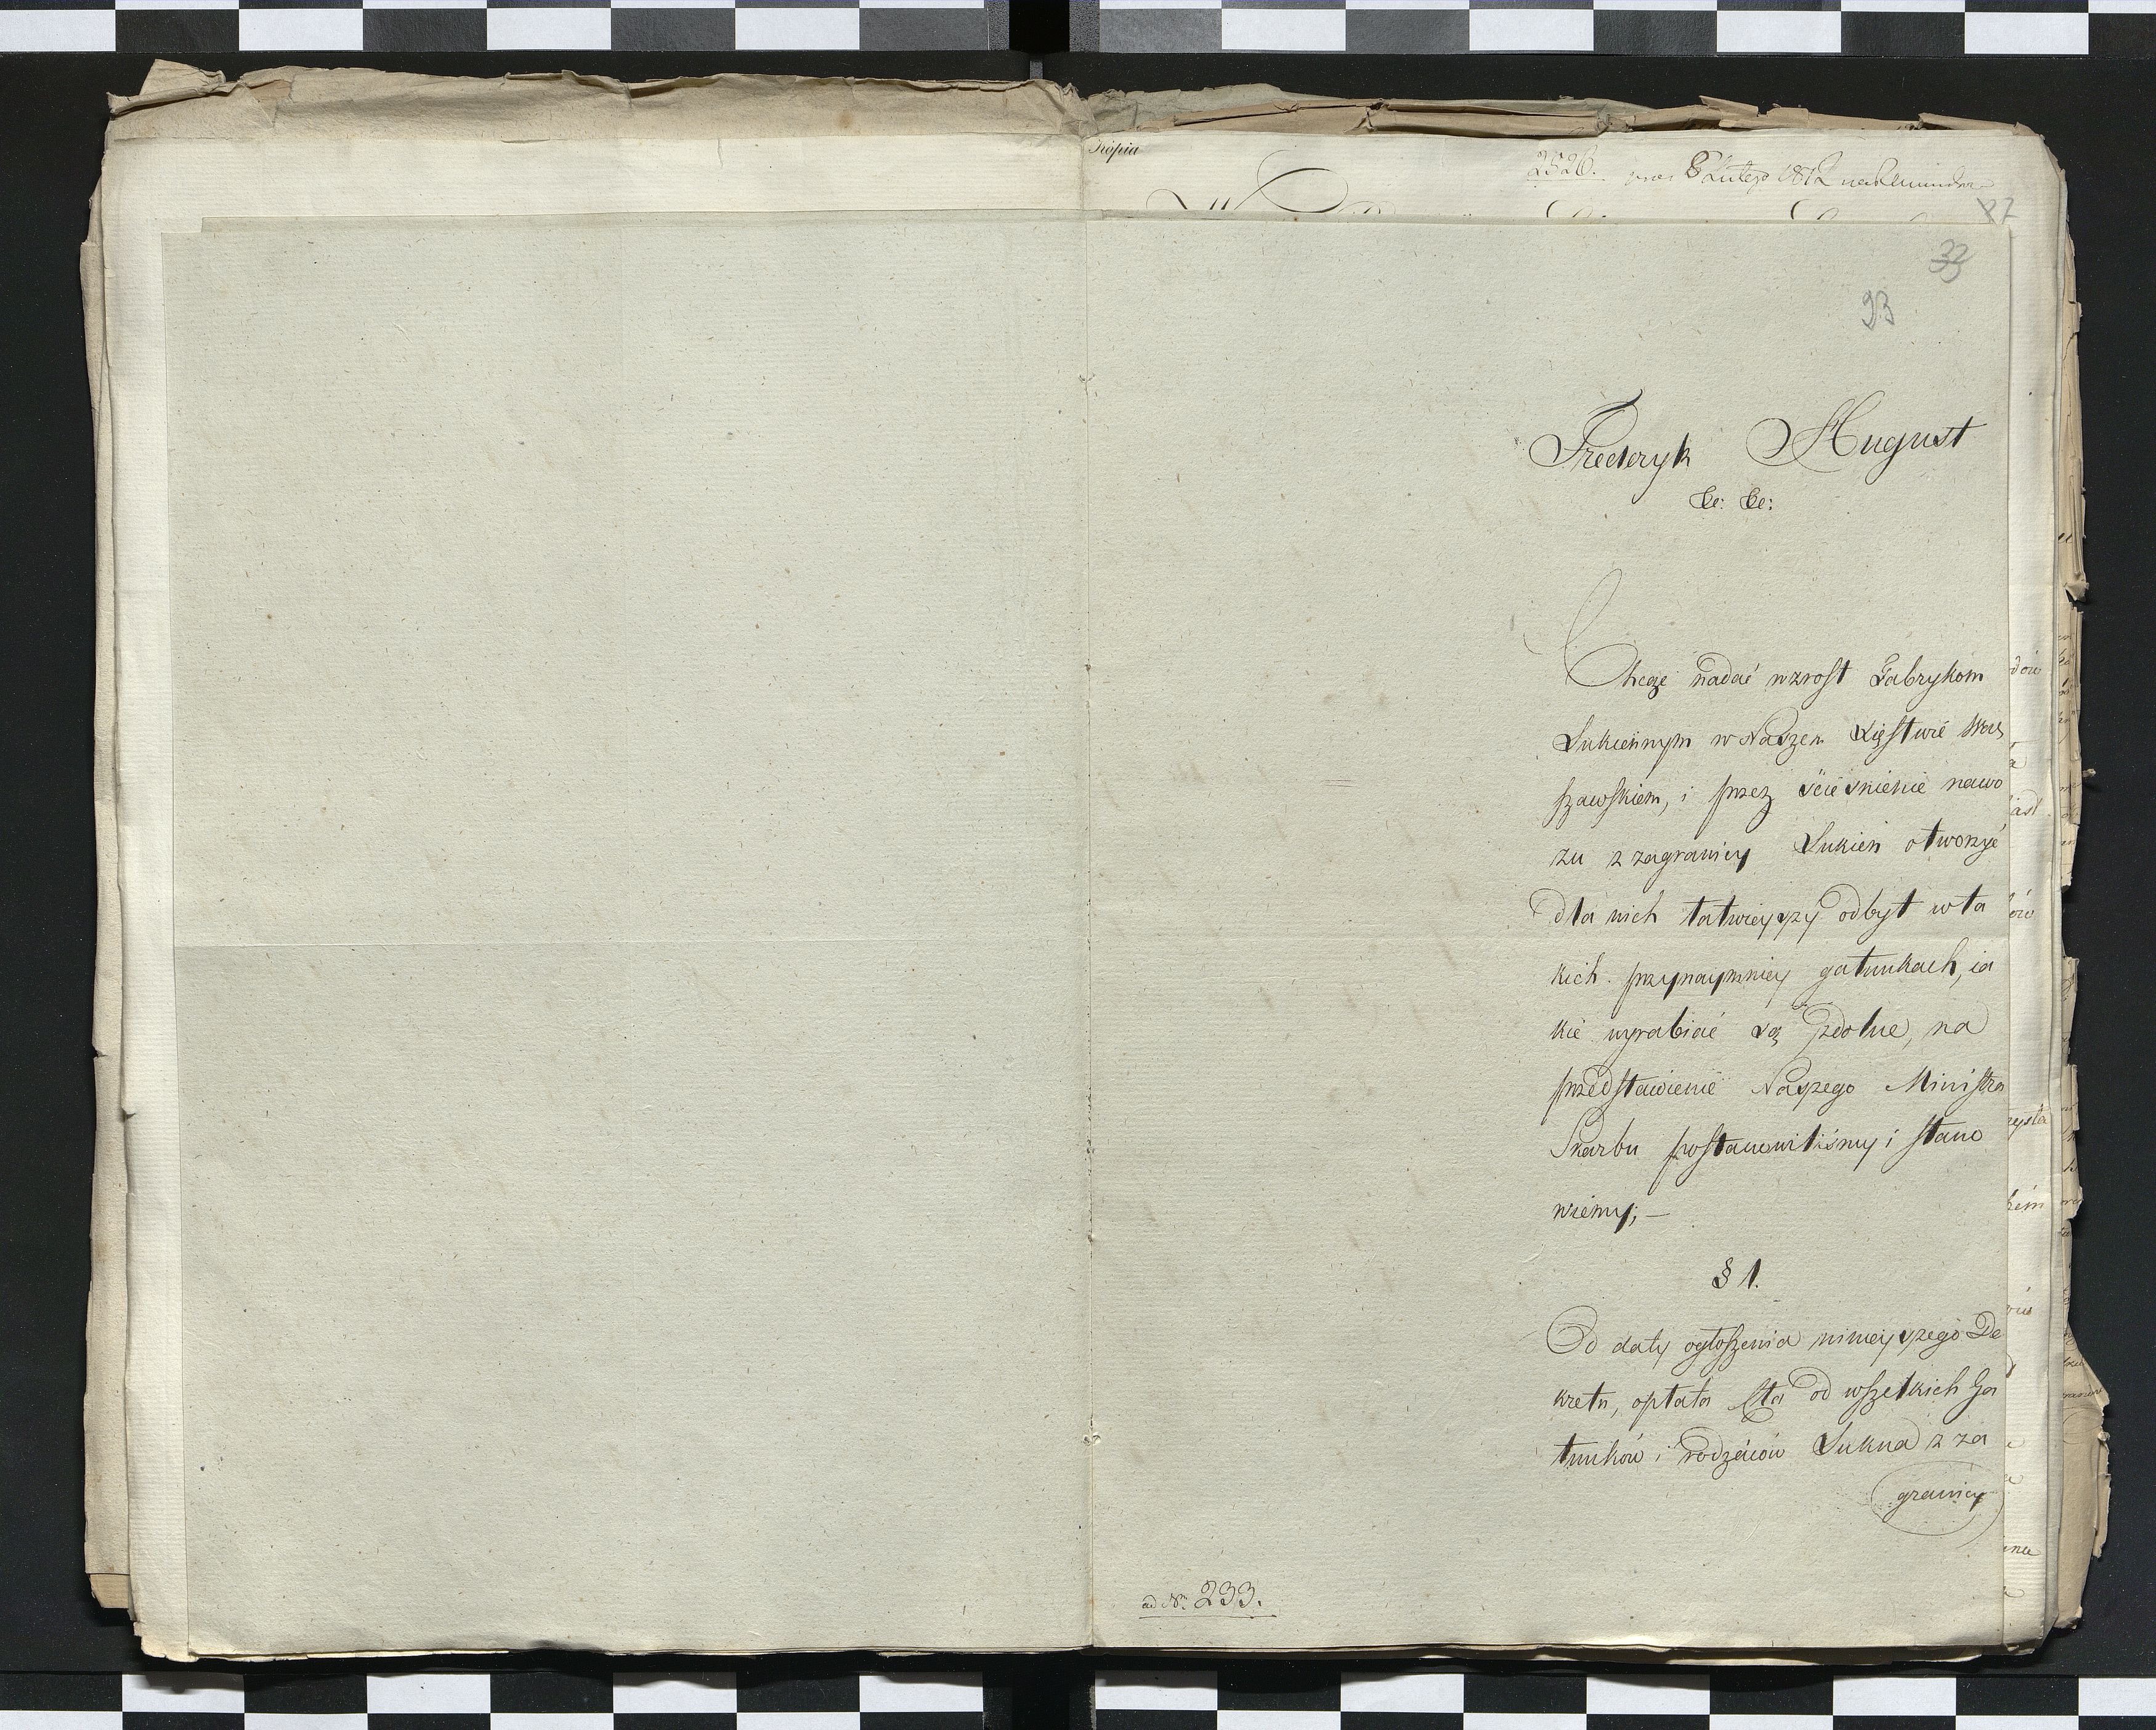 Kopia
2526.
8 Lutego 1812
87
33
93
Frederyk August
&c: &c:
Chcąc nadać wzrost Fabrykom
Sukiennym w Naszem Xięstwie War
szawskiem, i przez ścieśnienie nawo
zu z zagranicy Sukien otworzyć
dla nich łatwieyszy odbyt w ta
kich przynaymniey gatunkach, ia
kie wyrabiać są zdolne, na
przedstawienie Naszego Ministra
Skarbu postanowiliśmy i stano
wiemy; —
§ 1.
Od daty ogłoszenia ninieyszego De
kretu, opłata Cła od wszelkich Ga
tunków i rodzaiów Sukna z za
granicy
ad Nr. 233.